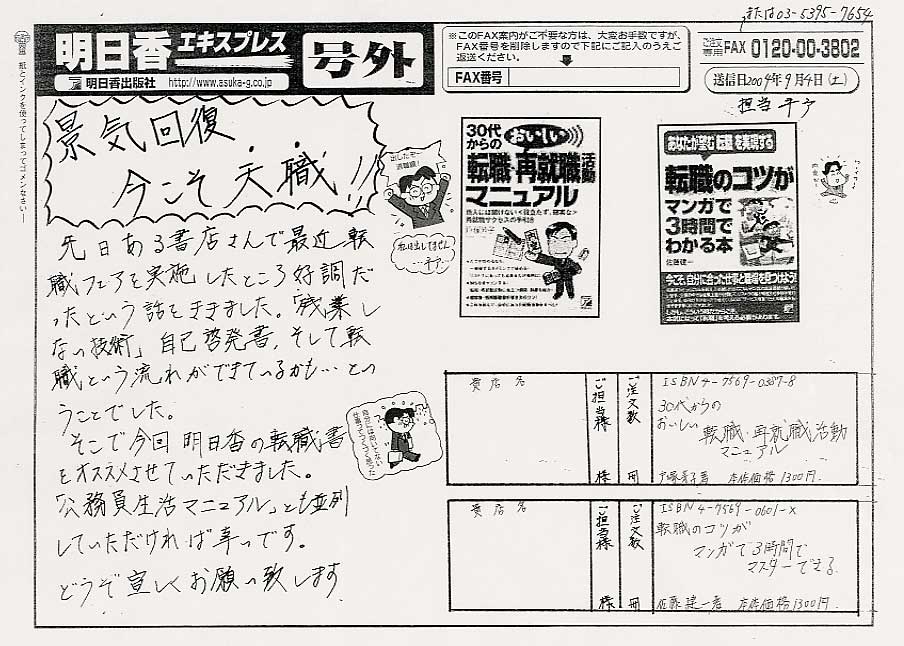 または03-5395-7654
紙とインクを使ってしまってゴメンなさい
明日香エキスプレス
号外
明日香出版社 http://www.asuka-g.co.jp
※このFAX案内がご不要な方は、大変お手数ですが、
FAX番号を削除しますので下記にご記入のうえご
返送ください。
FAX番号
ご注文専用 FAX 0120-00-3802
送信日2004年9月4日(土)
担当
景気回復
今こそ天職!!
先日ある書店さんで最近転
職フェアを実施したところ好調だ
ったという話をききました。「残業し
ない技術」自己啓発書、そして転
職という流れができているかも…とい
うことでした。
そこで今回明日香の転職書
をオススメさせていただきました。
「公務員生活マニュアル」とも並列
していただければ幸いです。
どうぞ宜しくお願い致します
私は出してません
30代
からの
おいしい
転職・再就職活動
マニュアル
あなたが望む転職を実現する
転職のコツが
マンガで
3時間で
わかる本
佐藤建一
今こそ、自分に合った仕事と職場を見つけよう!
貴店名
ご担当様
様
ご注文数
冊
ISBN4-7569-0387-8
30代からの
おいしい 転職・再就職活動
マニュアル
本体価格1300円
貴店名
ご担当様
様
ご注文数
冊
ISBN4-7569-0601-X
転職のコツが
マンガで3時間で
マスターできる
佐藤建一著 本体価格1300円